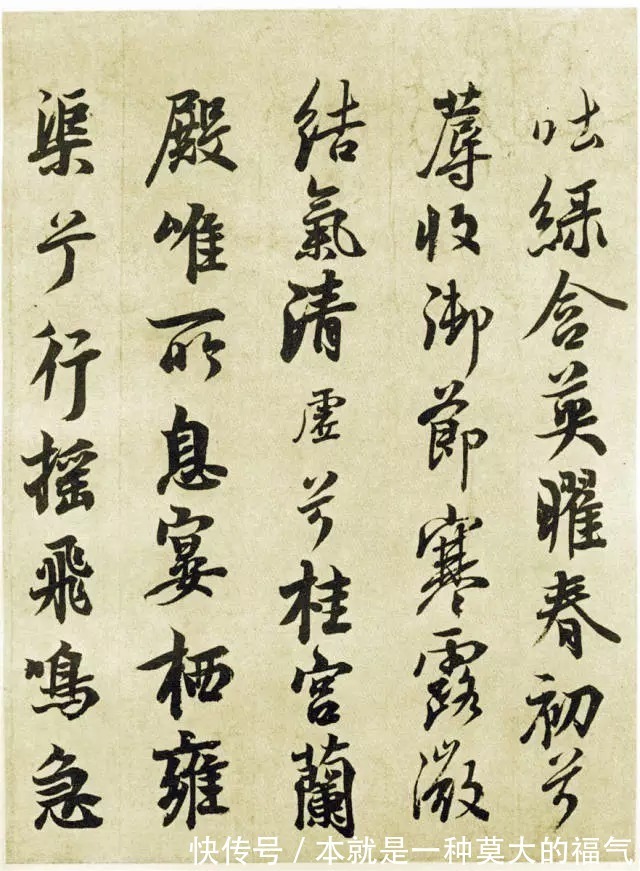 吐緑含英曜春初兮
蓐收御節寒露微
結氣清虛兮桂宮蘭
殿唯所息宴栖雍
渠兮行摇飛鳴急
快传号/本就是一种莫大的福气